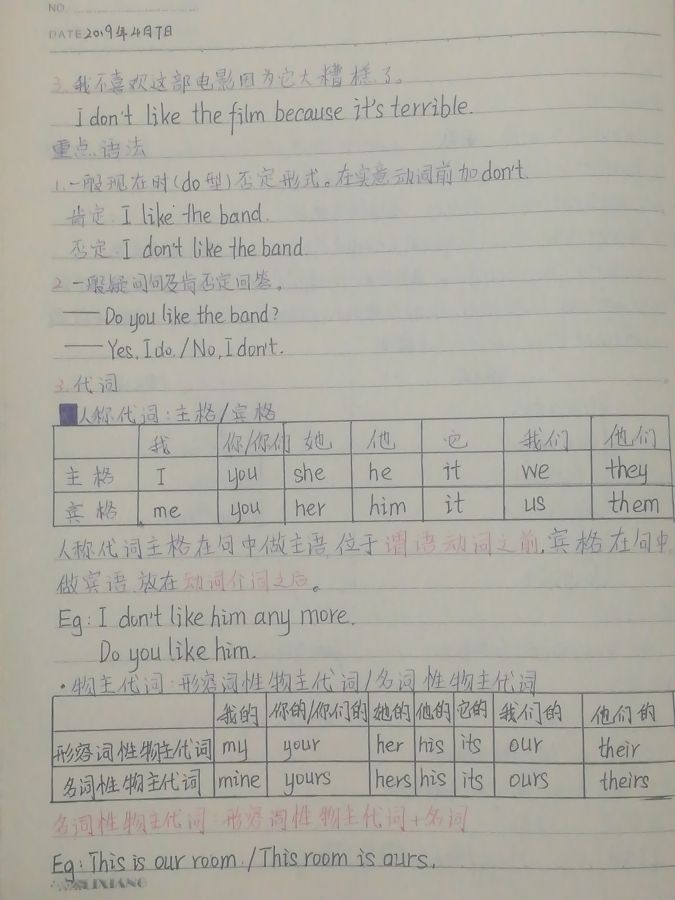 NO.
DATE 2019年4月7日
3. 我不喜欢这部电影因为它太糟糕了。
I don't like the film because it's terrible.
重点语法
1. 一般现在时(do型)否定形式。在实意动词前加don't.
肯定: I like the band.
否定: I don't like the band.
2. 一般疑问句及肯否定回答。
—— Do you like the band?
—— Yes, I do. / No, I don't.
3. 代词
人称代词:主格/宾格
我 你/你们 她 他 它 我们 他们
主格 I you she he it we they
宾格 me you her him it us them
人称代词主格在句中做主语,位于谓语动词之前,宾格在句中
做宾语,放在动词介词之后。
Eg: I don't like him any more.
Do you like him.
·物主代词:形容词性物主代词/名词性物主代词
我的 你的/你们的 她的 他的 它的 我们的 他们的
形容词性物主代词 my your her his its our their
名词性物主代词 mine yours hers his its ours theirs
名词性物主代词:形容词性物主代词+名词
Eg: This is our room. / This room is ours.